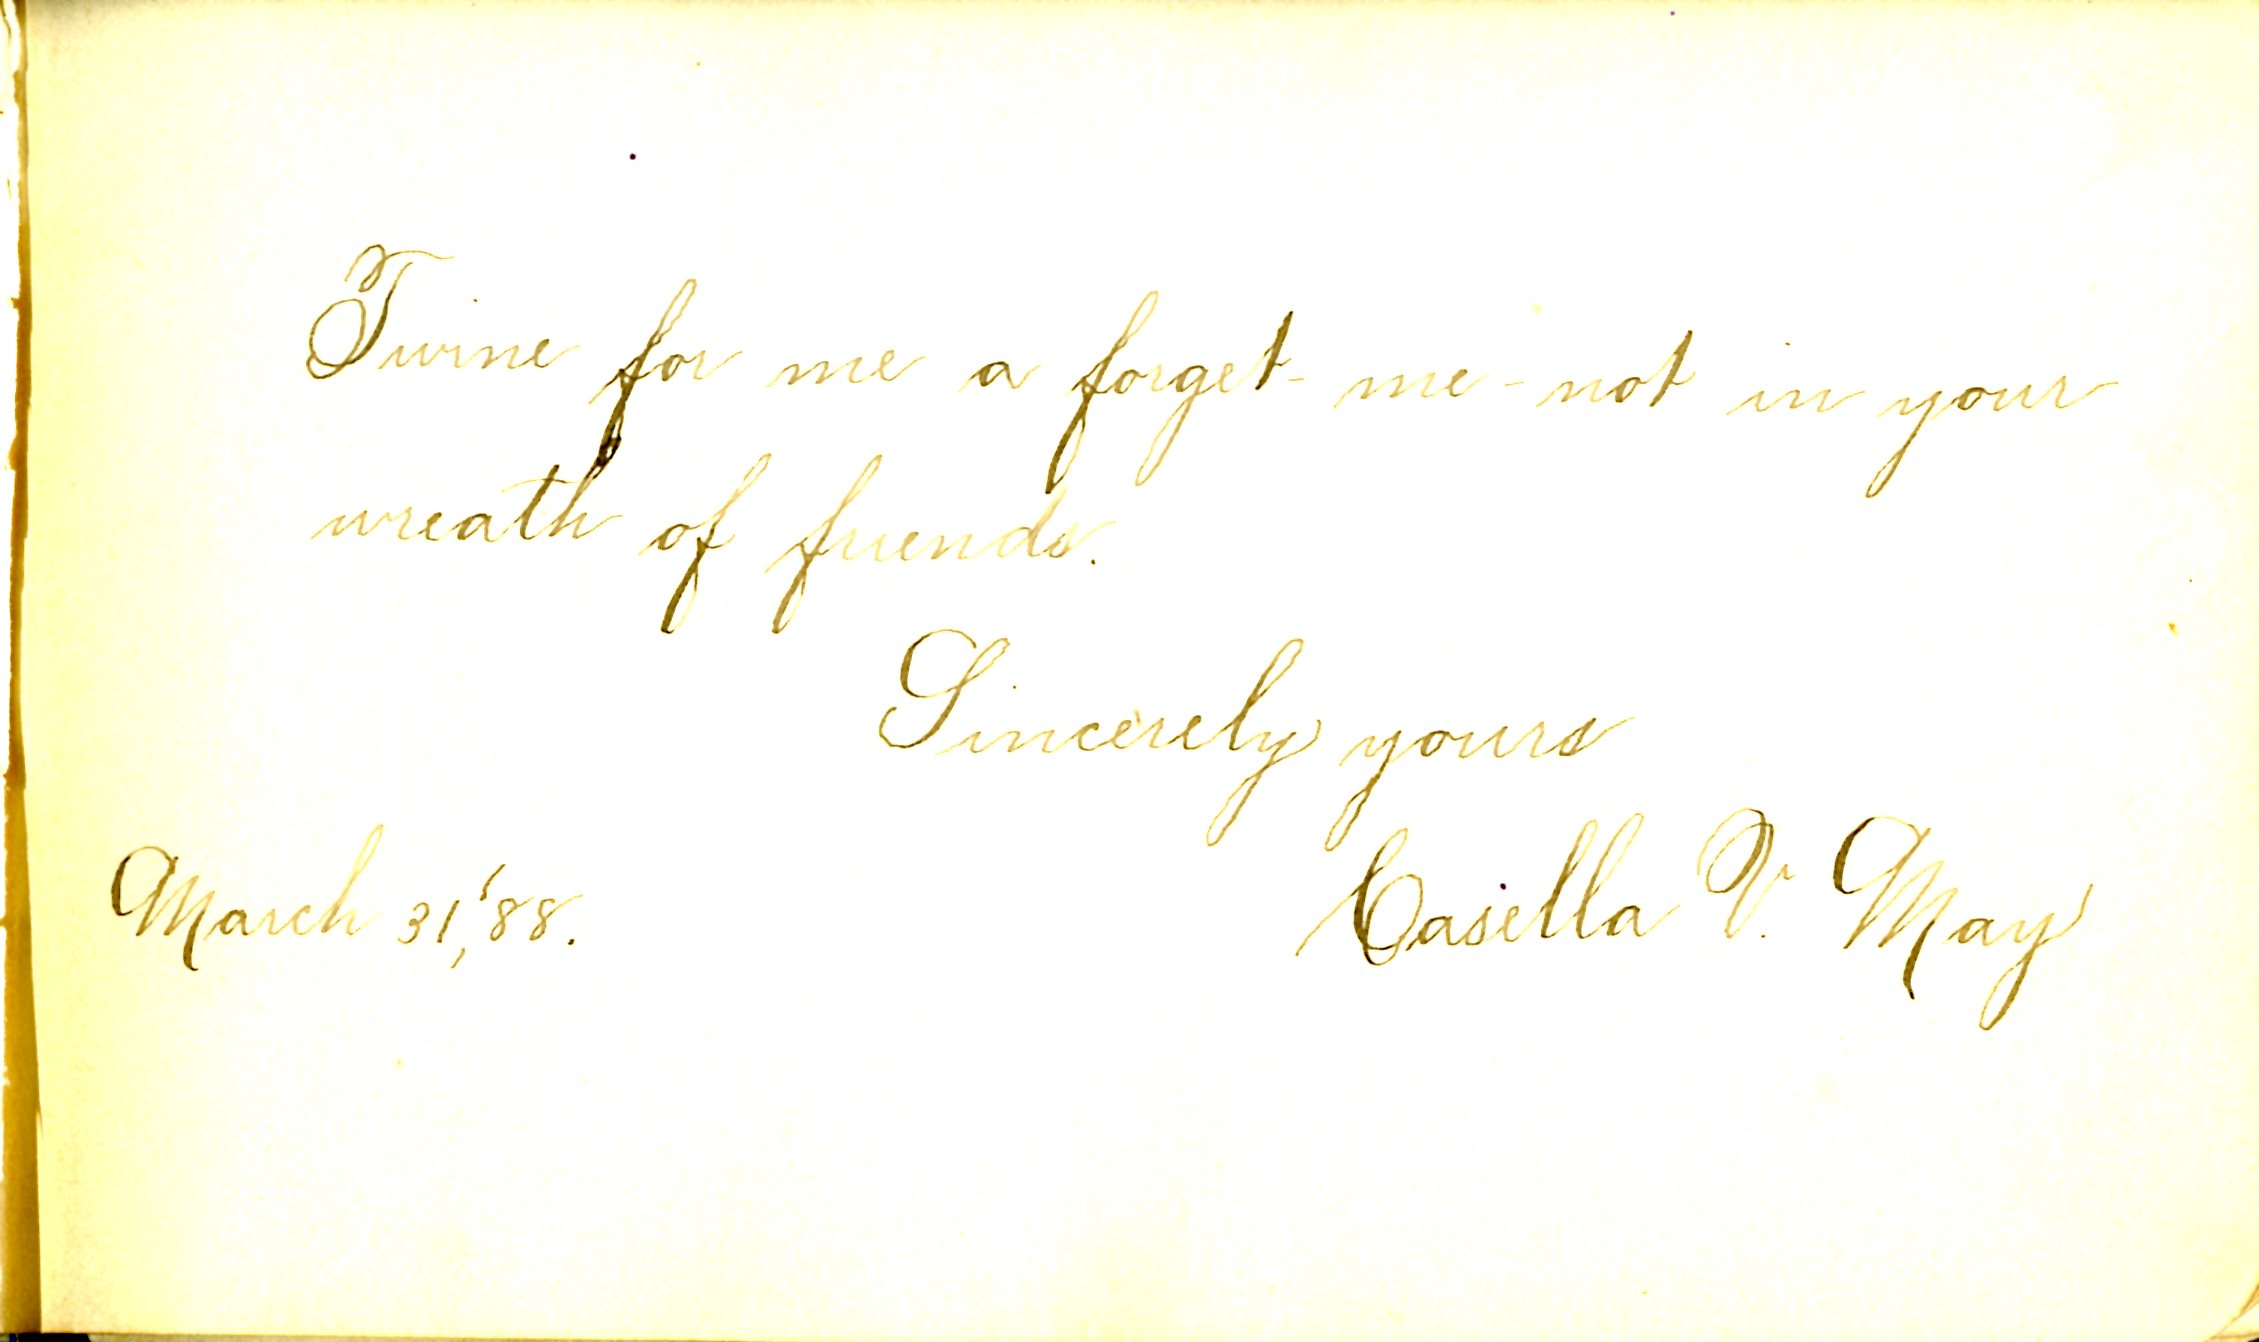 Twine for me a forget-me-not in your
wreath of friends.
Sincerely yours
Casella V. May
March 31, '88.